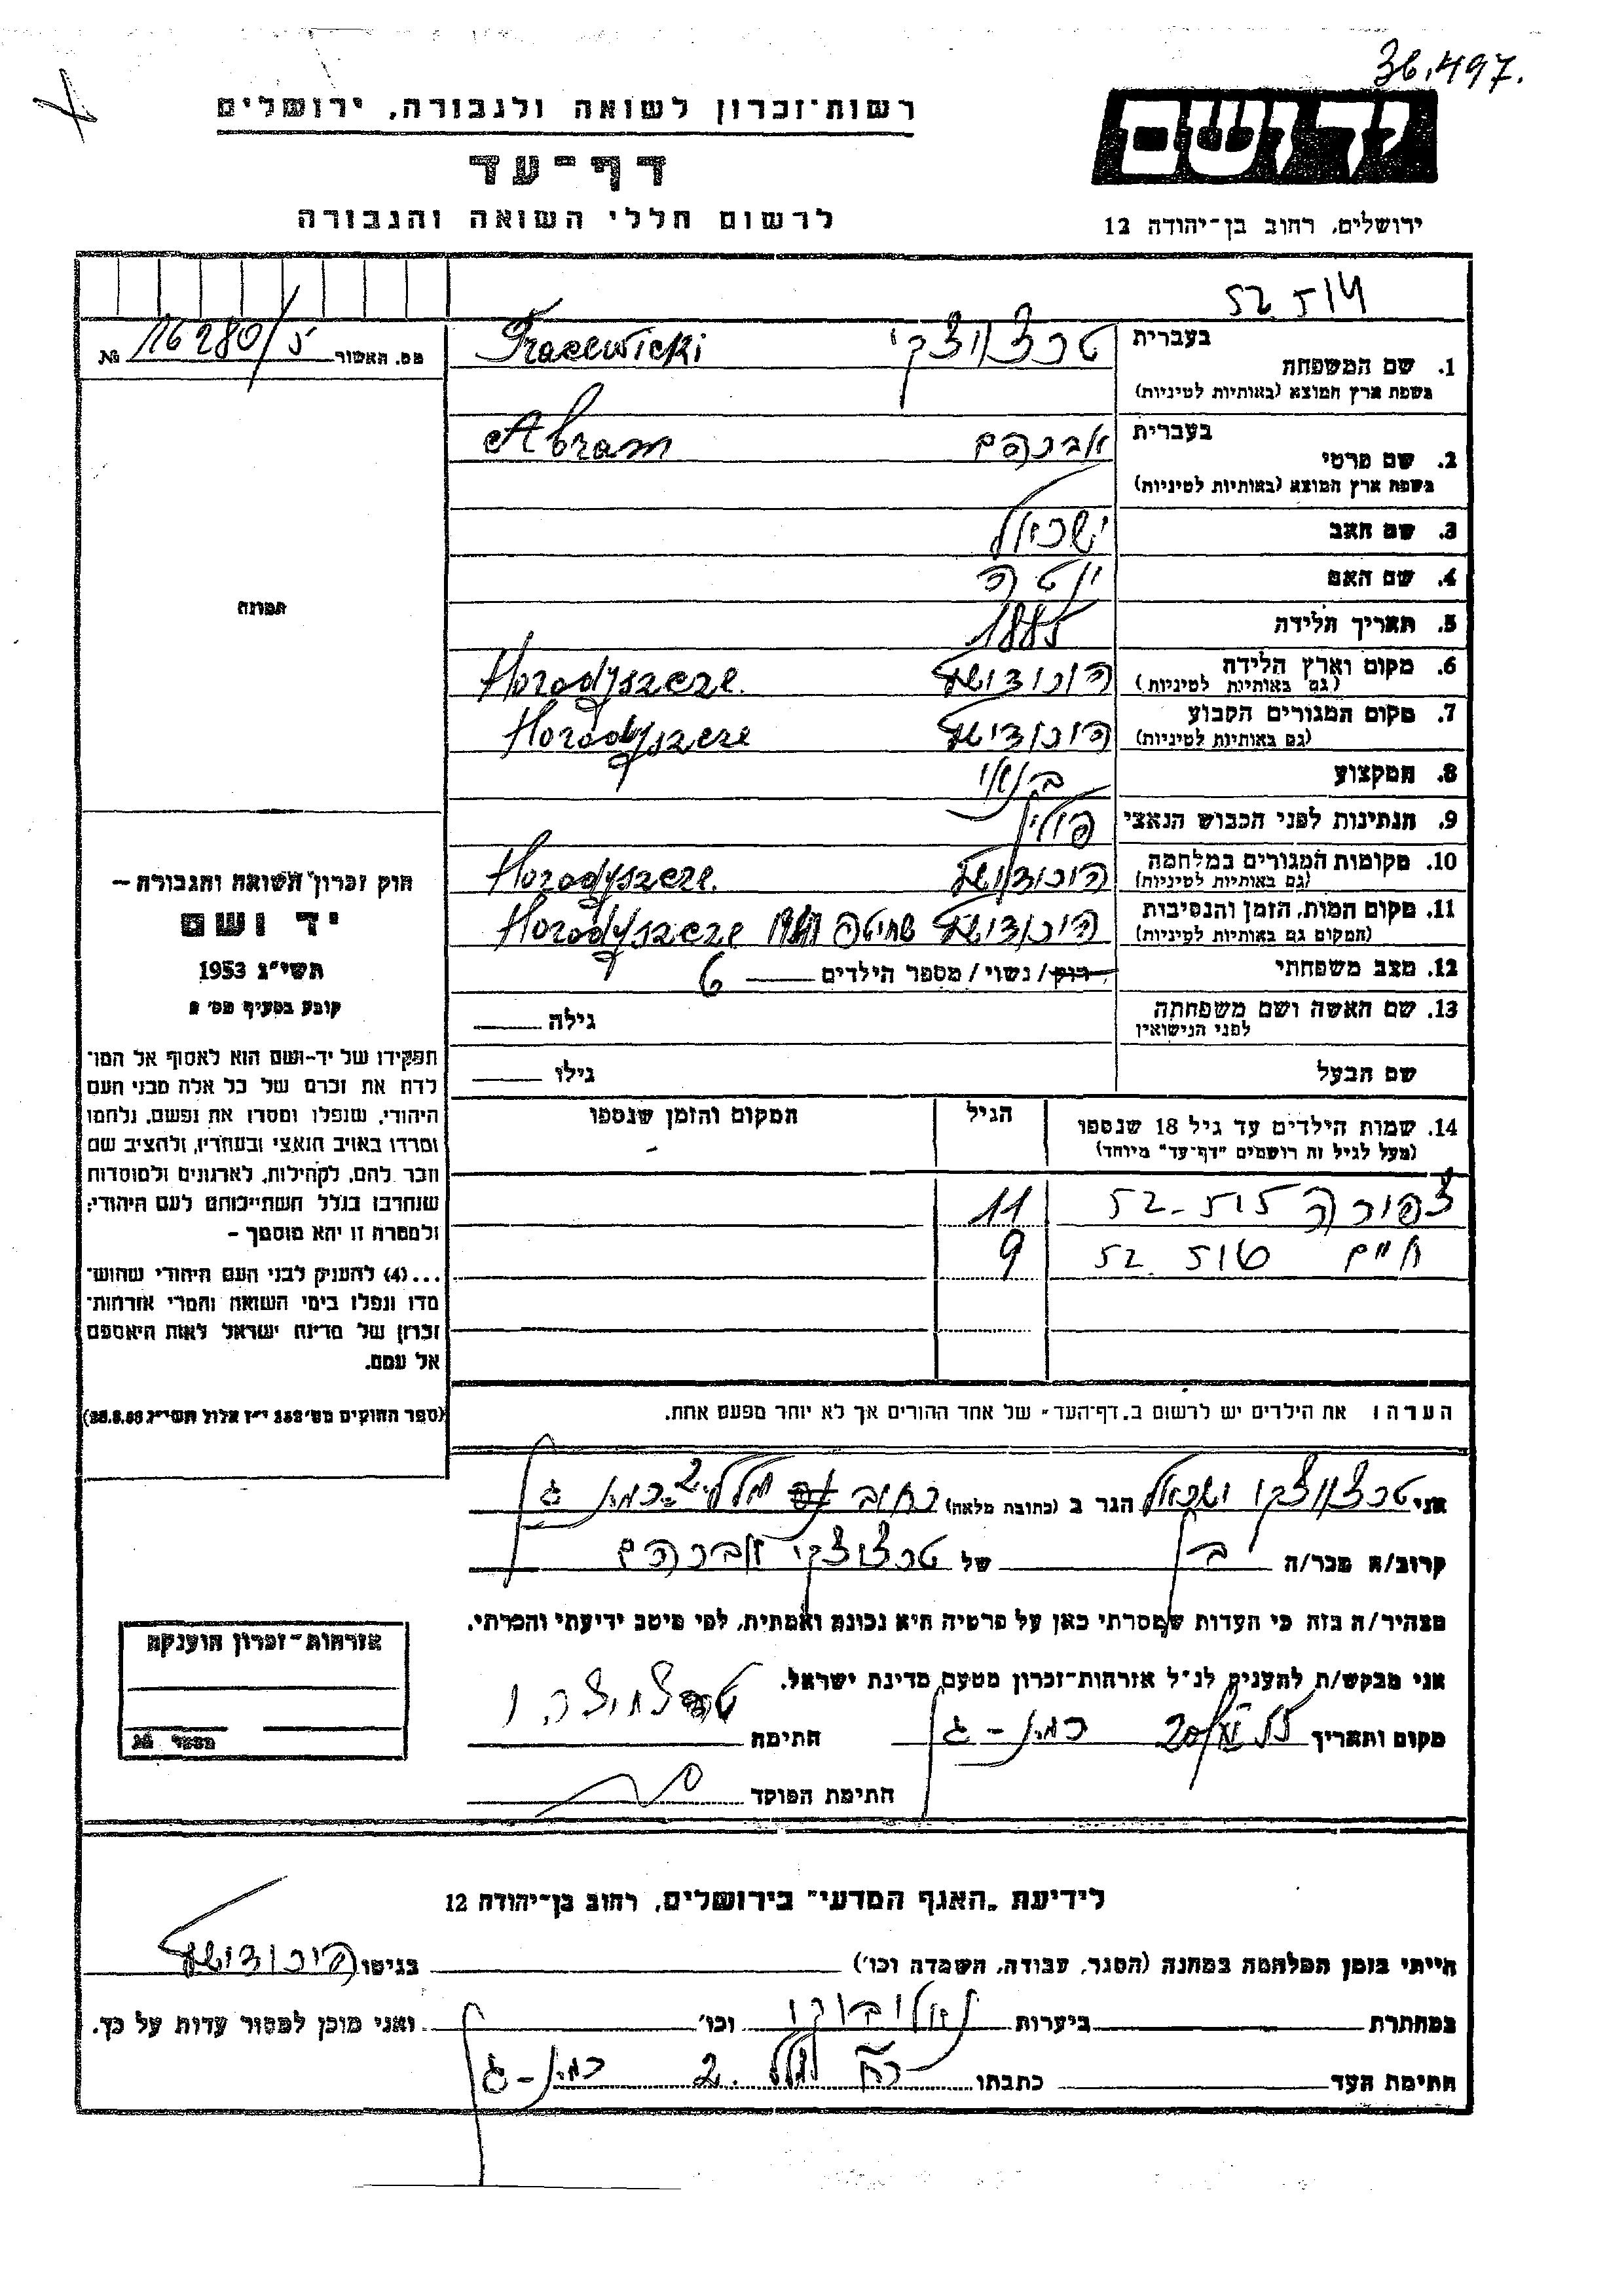 36.497.
רשות-זכרון לשואה ולגבורה, ירושלים
דף-עד
לרשום חללי השואה והגבורה
יד ושם
ירושלים, רחוב בן-יהודה 12
52 514
מס. האשור 16280/5 №
1. שם המשפחה בעברית טרצ'ווצקי Tracewicki
בשפת ארץ המוצא (באותיות לטיניות)
2. שם פרטי בעברית אברהם Abram
בשפת ארץ המוצא (באותיות לטיניות)
3. שם האב ישראל
4. שם האם יוטה
5. תאריך הלידה 1885
6. מקום וארץ הלידה הורודישץ Horodyszcze.
(גם באותיות לטיניות)
7. מקום המגורים הקבוע הורודישץ Horodyszcze
(גם באותיות לטיניות)
8. המקצוע בנאי
9. הנתינות לפני הכבוש הנאצי פולין
10. מקומות המגורים במלחמה הורודישץ Horodyszcze.
(גם באותיות לטיניות)
11. מקום המות, הזמן והנסיבות הורודישץ שחיטה Horodyszcze
(המקום גם באותיות לטיניות)
12. מצב משפחתי רווק/ נשוי/ מספר הילדים 6
13. שם האשה ושם משפחתה גילה
לפני הנישואין
שם הבעל גילו
14. שמות הילדים עד גיל 18 שנספו הגיל המקום והזמן שנספו
(מעל לגיל זה רושמים "דף-עד" מיוחד)
צפורה 52.515 11
חיים 52.516 9
תמונה
חוק זכרון השואה והגבורה –
יד ושם
תשי"ג 1953
קובע בסעיף מס' 2
תפקידו של יד-ושם הוא לאסוף אל המו־
לדת את זכרם של כל אלה מבני העם
היהודי, שנפלו ומסרו את נפשם, נלחמו
ומרדו באויב הנאצי ובעוזריו, ולהציב שם
וזכר להם, לקהילות, לארגונים ולמוסדות
שנחרבו בגלל השתייכותם לעם היהודי;
ולמטרה זו יהא מוסמך –
...(4) להעניק לבני העם היהודי שהוש־
מדו ונפלו בימי השואה והמרי אזרחות־
זכרון של מדינת ישראל לאות היאספם
אל עמם.
(ספר החוקים מס' 132 י"ז אלול תשי"ג 28.8.53)
הערה: את הילדים יש לרשום ב"דף-העד" של אחד ההורים אך לא יותר מפעם אחת.
אני טרצ'ווצקי ישראל הגר ב (כתובת מלאה) רחוב 2 רמת-גן
קרוב/ה מכר/ה בן של טרצ'ווצקי אברהם
מצהיר/ה בזה כי העדות שמסרתי כאן על פרטיה היא נכונה ואמתית, לפי מיטב ידיעתי והכרתי.
אני מבקש/ת להעניק לנ"ל אזרחות-זכרון מטעם מדינת ישראל.
מקום ותאריך רמת-גן 55 20 חתימה
חתימת הפוקד
אזרחות-זכרון הוענקה
מספר №
לידיעת "האגף המדעי" בירושלים, רחוב בן-יהודה 12
הייתי בזמן המלחמה במחנה (הסגר, עבודה, השמדה וכו') בגיטו הורודישץ
במחתרת ביערות וכו' ואני מוכן למסור עדות על כך.
חתימת העד כתבתו רח' 2 רמת-גן